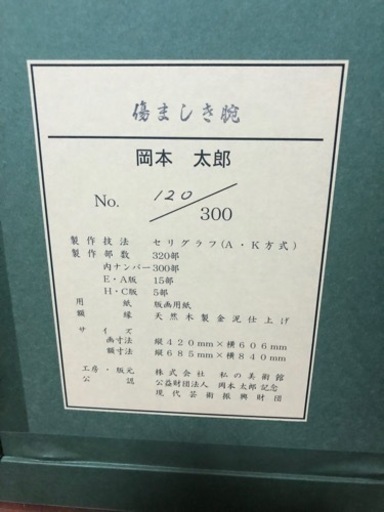 傷ましき腕
岡本 太郎
No. 120/300
製作技法 セリグラフ(A・K方式)
製作部数 320部
内ナンバー300部
E・A版 15部
H・C版 5部
用紙 版画用紙
額縁 天然木製金泥仕上げ
サイズ
画寸法 縦420mm×横606mm
額寸法 縦685mm×横840mm
工房・版元 株式会社 私の美術館
公認 公益財団法人 岡本太郎記念
現代芸術振興財団